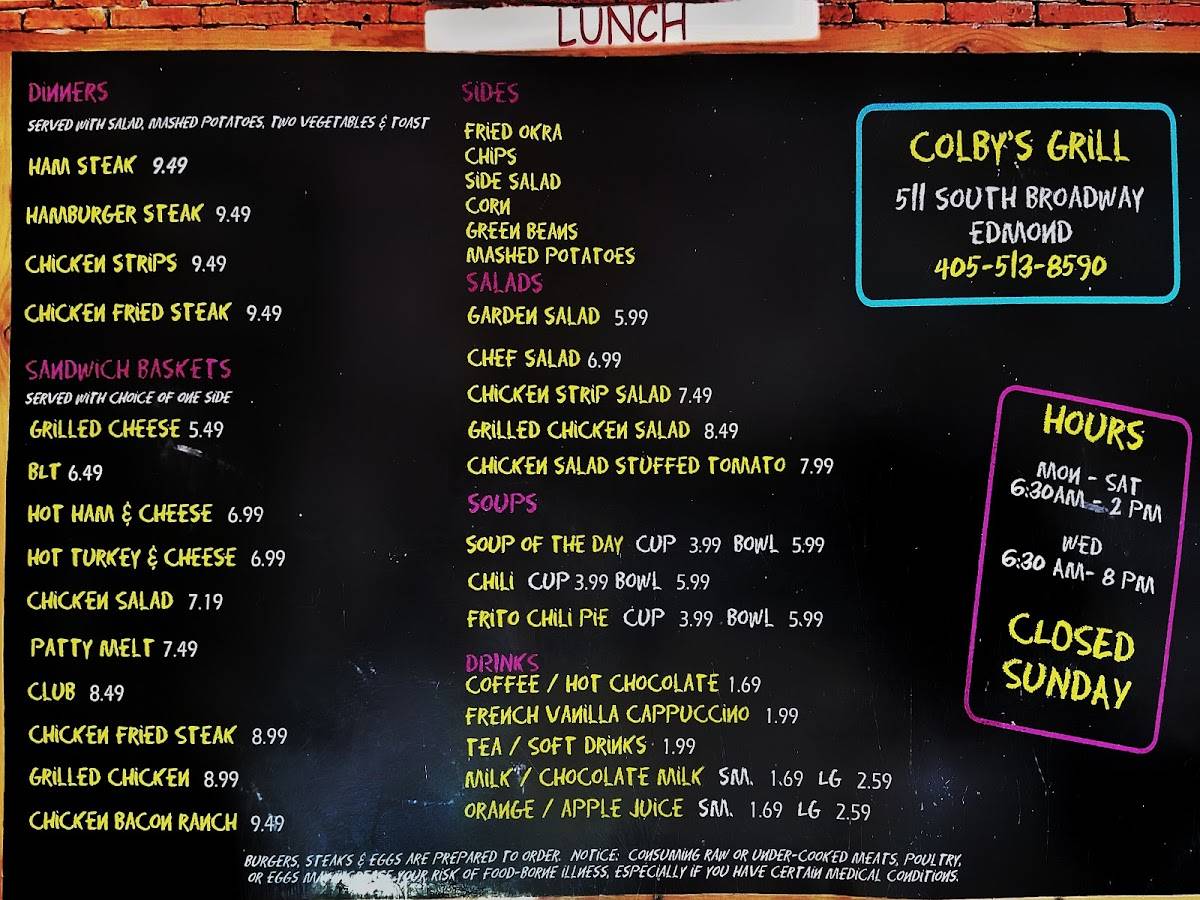 LUNCH
DINNERS
SERVED WITH SALAD, MASHED POTATOES, TWO VEGETABLES & TOAST
HAM STEAK 9.49
HAMBURGER STEAK 9.49
CHICKEN STRIPS 9.49
CHICKEN FRIED STEAK 9.49
SANDWICH BASKETS
SERVED WITH CHOICE OF ONE SIDE
GRILLED CHEESE 5.49
BLT 6.49
HOT HAM & CHEESE 6.99
HOT TURKEY & CHEESE 6.99
CHICKEN SALAD 7.19
PATTY MELT 7.49
CLUB 8.49
CHICKEN FRIED STEAK 8.99
GRILLED CHICKEN 8.99
CHICKEN BACON RANCH 9.49
SIDES
FRIED OKRA
CHIPS
SIDE SALAD
CORN
GREEN BEANS
MASHED POTATOES
SALADS
GARDEN SALAD 5.99
CHEF SALAD 6.99
CHICKEN STRIP SALAD 7.49
GRILLED CHICKEN SALAD 8.49
CHICKEN SALAD STUFFED TOMATO 7.99
SOUPS
SOUP OF THE DAY CUP 3.99 BOWL 5.99
CHILI CUP 3.99 BOWL 5.99
FRITO CHILI PIE CUP 3.99 BOWL 5.99
DRINKS
COFFEE / HOT CHOCOLATE 1.69
FRENCH VANILLA CAPPUCCINO 1.99
TEA / SOFT DRINKS 1.99
MILK / CHOCOLATE MILK SM. 1.69 LG 2.59
ORANGE / APPLE JUICE SM. 1.69 LG 2.59
COLBY'S GRILL
511 SOUTH BROADWAY
EDMOND
405-513-8590
HOURS
MON - SAT
6:30AM - 2 PM
WED
6:30 AM- 8 PM
CLOSED
SUNDAY
BURGERS, STEAKS & EGGS ARE PREPARED TO ORDER. NOTICE: CONSUMING RAW OR UNDER-COOKED MEATS, POULTRY,
OR EGGS MAY INCREASE YOUR RISK OF FOOD-BORNE ILLNESS, ESPECIALLY IF YOU HAVE CERTAIN MEDICAL CONDITIONS.